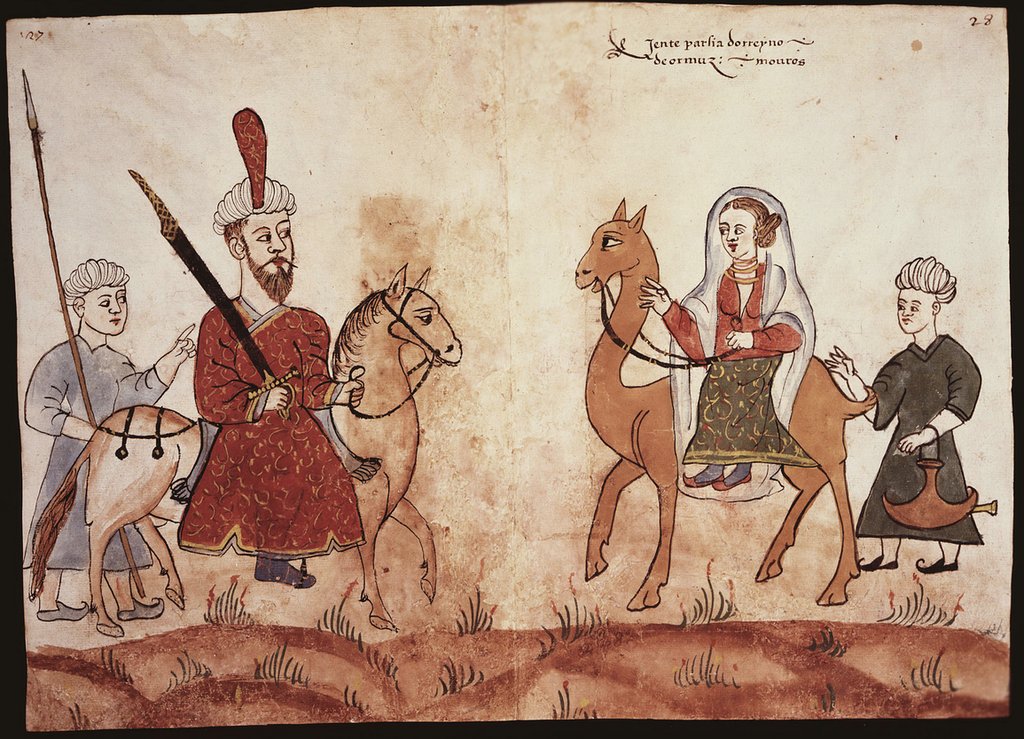 27
28
Jente parsia dorreyno
de ormuz: mouros